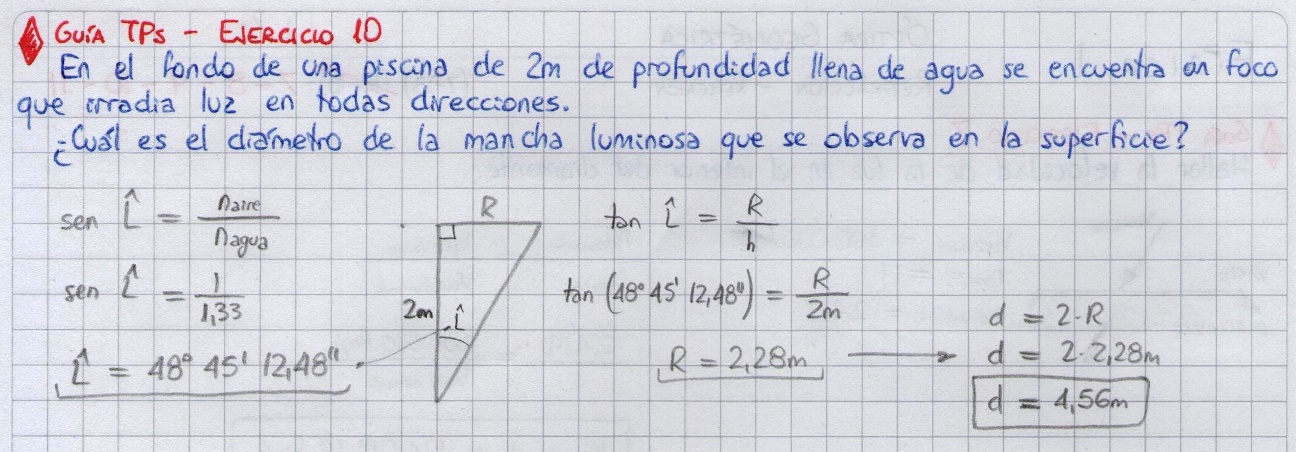 GUÍA TPs - EJERCICIO 10
En el fondo de una piscina de 2m de profundidad llena de agua se encuentra un foco
que irradia luz en todas direcciones.
¿Cuál es el diámetro de la mancha luminosa que se observa en la superficie?
sen L̂ = naire / nagua
sen L̂ = 1 / 1,33
L̂ = 48° 45' 12,48"
R
2m
L̂
tan L̂ = R / h
tan (48° 45' 12,48") = R / 2m
R = 2,28m
d = 2·R
d = 2·2,28m
d = 4,56m